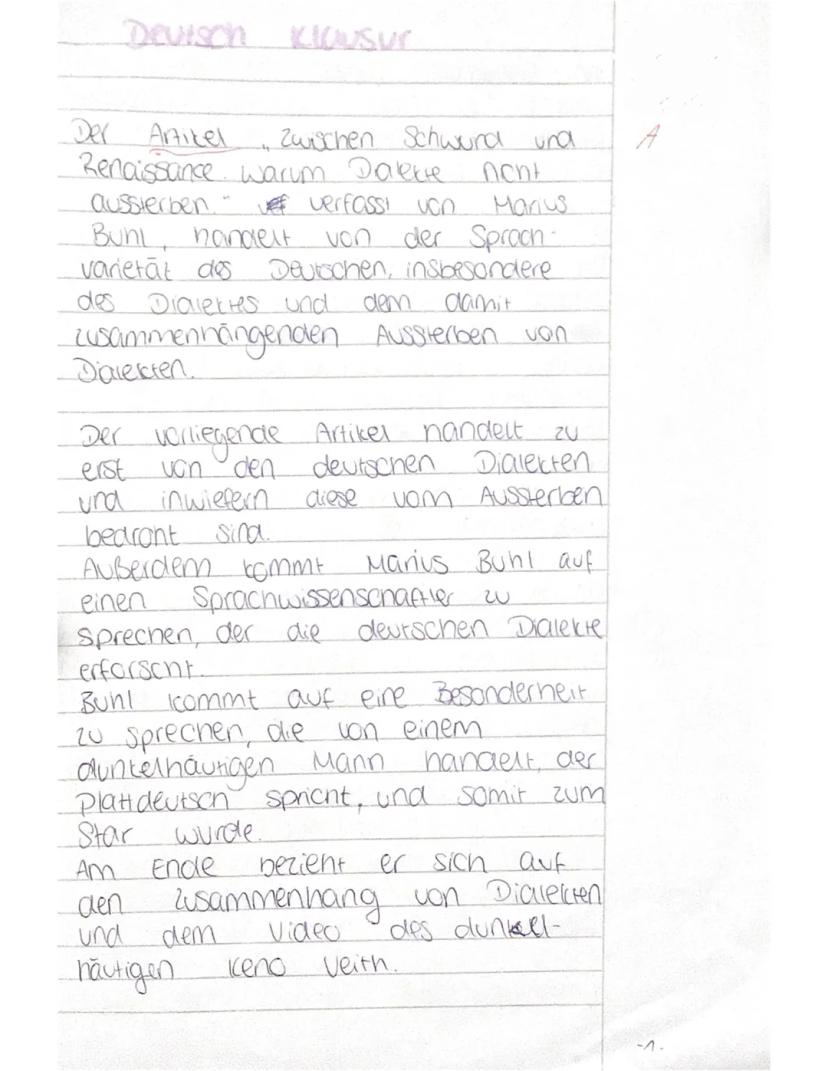 Deutsch Klausur
Der Artikel „Zwischen Schwund und
A
Renaissance. Warum Dialekte nicht
aussterben." verfasst von Marius
Buhl, handelt von der Sprach-
varietät des Deutschen, insbesondere
des Dialektes und dem damit
zusammenhängenden Aussterben von
Dialekten.
Der vorliegende Artikel handelt zu
erst von den deutschen Dialekten
und inwiefern diese vom Aussterben
bedroht sind.
Außerdem kommt Marius Buhl auf
einen Sprachwissenschaftler zu
sprechen, der die deutschen Dialekte
erforscht.
Buhl kommt auf eine Besonderheit
zu sprechen, die von einem
dunkelhäutigen Mann handelt, der
Plattdeutsch spricht, und somit zum
Star wurde.
Am Ende bezieht er sich auf
den Zusammenhang von Dialekten
und dem Video des dunkel-
häutigen Keno Veith.
-1-